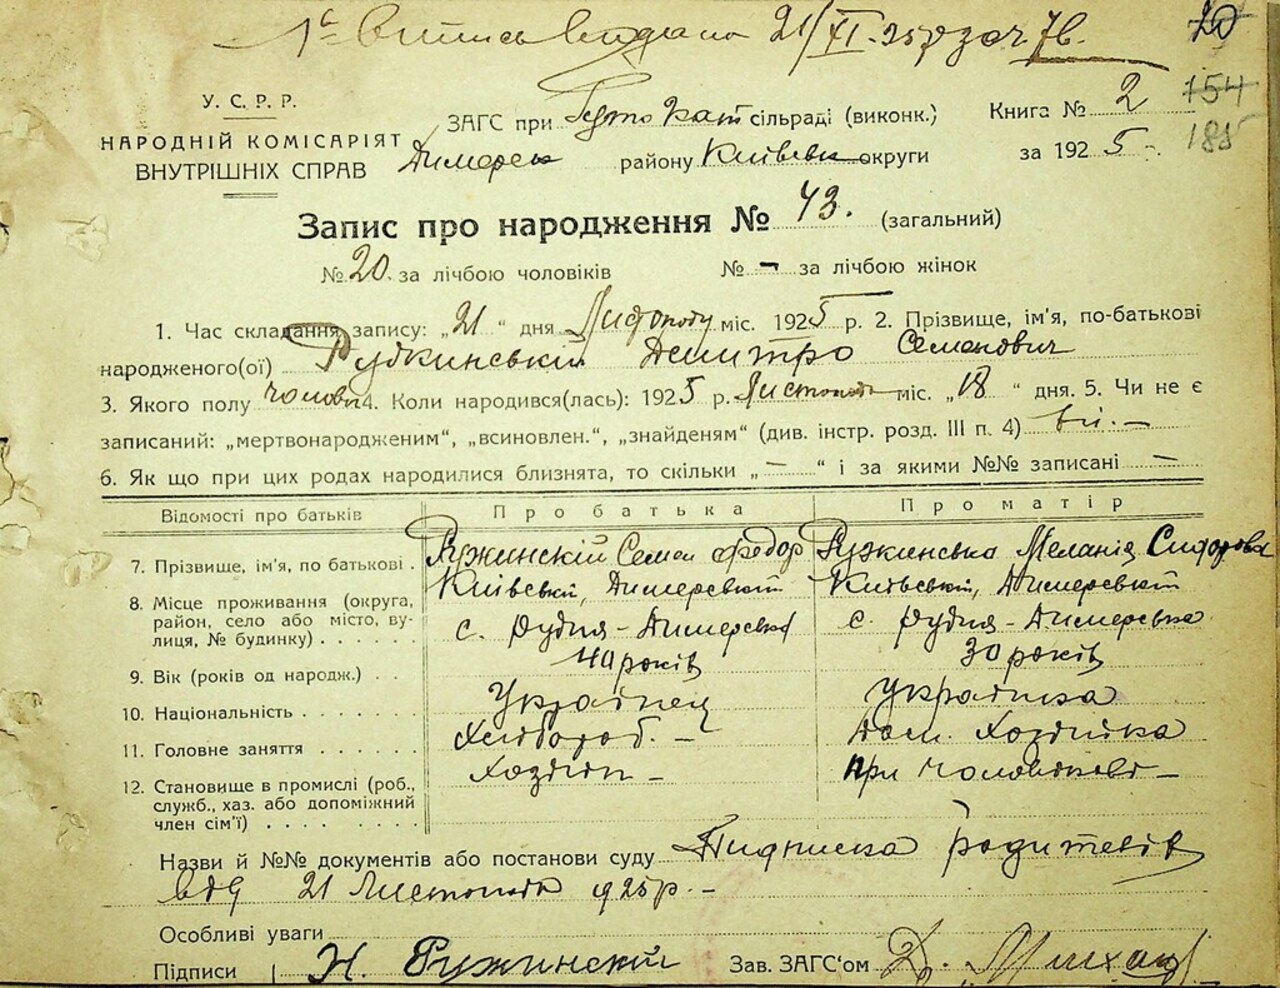 1ᵃ Витись видана 21/XI-25р за № 76. 20
У. С. Р. Р.
НАРОДНІЙ КОМІСАРІЯТ
ВНУТРІШНІХ СПРАВ
ЗАГС при Гуто Кат сільраді (виконк.) Книга № 2 154
Димерськ району Київськ округи за 1925 185
Запис про народження № 43. (загальний)
№ 20 за лічбою чоловіків № - за лічбою жінок
1. Час складання запису: „21 “ дня Листопаду міс. 1925 р. 2. Прізвище, ім'я, по-батькові
народженого(ої) Рудкинський Дмитро Семенович
3. Якого полу чолові 4. Коли народився(лась): 1925 р. Листопада міс. „18 “ дня. 5. Чи не є
записаний: „мертвонародженим“, „всиновлен.“, „знайденям“ (див. інстр. розд. III п. 4) ні. -
6. Як що при цих родах народилися близнята, то скільки „ - “ і за якими №№ записані -
Відомості про батьків Про батька Про матір
7. Прізвище, ім'я, по батькові . Ружинскій Семен Федор Ружинська Меланія Сидорова
8. Місце проживання (округа, Київській, Димерський Київській, Димерський
район, село або місто, ву-
лиця, № будинку) . . . . . с. Рудня-Димерська с. Рудня-Димерська
9. Вік (років од народж.) . . 40 років 30 років
10. Національність . . . . . . Українец Українка
11. Головне заняття . . . . . . Хлібороб. - Дом. Хозяйка
12. Становище в промислі (роб., Хозяін - при чоловікові -
служб., хаз. або допоміжний
член сім'ї) . . . . . . . . .
Назви й №№ документів або постанови суду Підписка родителів
від 21 Листопада 1925р. -
Особливі уваги
Підписи Н. Ружинскій Зав. ЗАГС'ом Д.